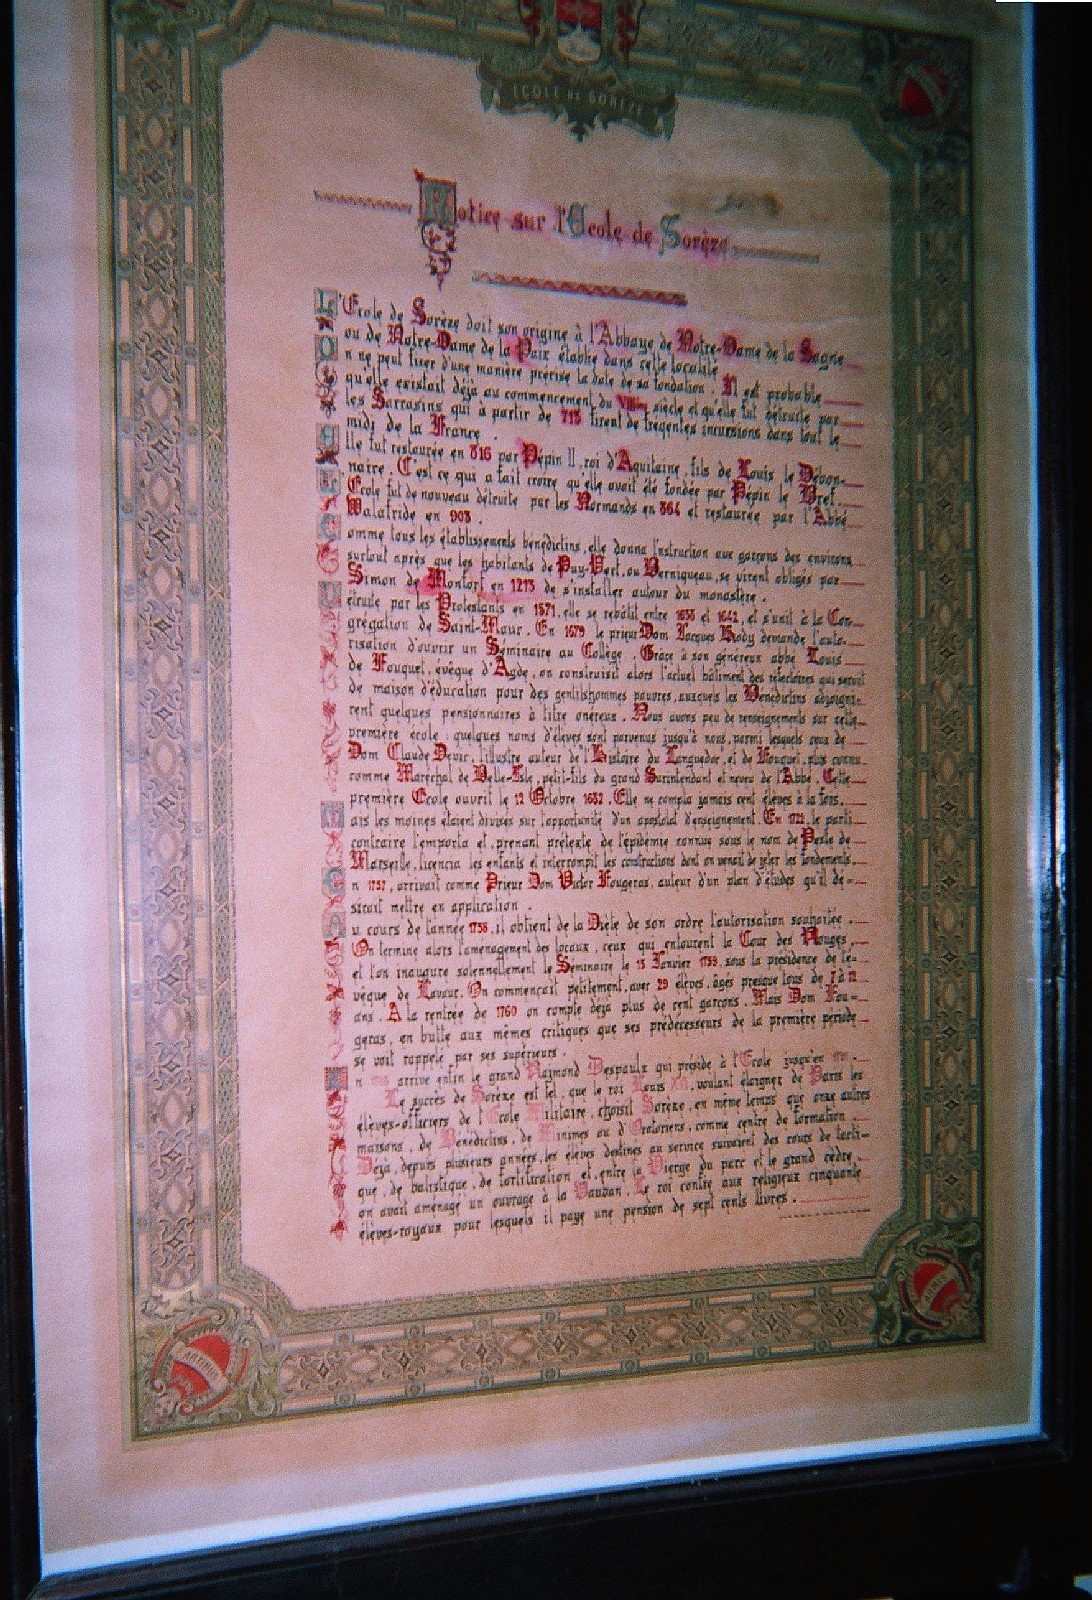 ECOLE DE SORÈZE
Notice sur l'Ecole de Sorèze
L'Ecole de Sorèze doit son origine à l'Abbaye de Notre-Dame de la Sagne
ou de Notre-Dame de la Paix établie dans cette localité
On ne peut fixer d'une manière précise la date de sa fondation. Il est probable
qu'elle existait déjà au commencement du VIIIme siècle et qu'elle fut détruite par
les Sarrasins qui à partir de 715 firent de fréqentes incursions dans tout le
midi de la France.
Elle fut restaurée en 816 par Pépin II, roi d'Aquitaine, fils de Louis le Débon-
naire. C'est ce qui a fait croire qu'elle avait été fondée par Pépin le Bref.
L'Ecole fut de nouveau détruite par les Normands en 864 et restaurée par l'Abbé
Walafride en 903.
Comme tous les établissements bénédictins, elle donna l'instruction aux garçons des environs
surtout après que les habitants de Puy-Vert, ou Verniqueau, se virent obligés par
Simon de Monfort en 1213 de s'installer autour du monastère.
Détruite par les Protestants en 1571, elle se rebâtit entre 1638 et 1642, et s'unit à la Con-
grégation de Saint-Maur. En 1679 le prieur Dom Jacques Hody demande l'auto-
risation d'ouvrir un Séminaire au Collège. Grâce à son généreux abbé Louis
de Fouquet, évêque d'Agde, on construisit alors l'actuel bâtiment des réfectoires qui servit
de maison d'éducation pour des gentilshommes pauvres, auxquels les Bénédictins adjoigni-
rent quelques pensionnaires à titre onéreux. Nous avons peu de renseignements sur cette
première école: quelques noms d'élèves sont parvenus jusqu'à nous, parmi lesquels ceux de
Dom Claude Devic, l'illustre auteur de l'Histoire du Languedoc, et de Fouquet, plus connu
comme Maréchal de Belle-Isle, petit-fils du grand Surintendant et neveu de l'Abbé. Cette
première Ecole ouvrit le 12 Octobre 1682. Elle ne compta jamais cent élèves à la fois.
Mais les moines étaient divisés sur l'opportunité d'un apostolat d'enseignement. En 1722, le parti
contraire l'emporta et, prenant prétexte de l'épidémie connue sous le nom de Peste de
Marseille, licencia les enfants et interrompit les constructions dont on venait de jeter les fondements.
En 1757, arrivait comme Prieur Dom Victor Fougeras, auteur d'un plan d'études qu'il dé-
sirait mettre en application.
Au cours de l'année 1758, il obtient de la Diète de son ordre l'autorisation souhaitée.
On termine alors l'aménagement des locaux, ceux qui entourent la Cour des Rouges,
et l'on inaugure solennellement le Séminaire le 15 Janvier 1759, sous la présidence de l'é-
vêque de Lavaur. On commençait petitement, avec 29 élèves, âgés presque tous de 7 à 12
ans. A la rentrée de 1760 on compte déjà plus de cent garçons. Mais Dom Fou-
geras, en butte aux mêmes critiques que ses prédécesseurs de la première période
se voit rappelé par ses supérieurs.
En arrive enfin le grand Raymond Despaulx qui préside à l'Ecole jusqu'en
Le succès de Sorèze est tel, que le roi Louis XVI, voulant éloigner de Paris les
élèves-officiers de l'Ecole Militaire, choisit Sorèze, en même temps que onze autres
maisons, de Bénédictins, de Minimes ou d'Oratoriens, comme centre de formation.
Déjà, depuis plusieurs années, les élèves destinés au service suivaient des cours de tacti-
que, de balistique, de fortification et, entre la Vierge du parc et le grand cèdre,
on avait aménagé un ouvrage à la Vauban. Le roi confie aux religieux cinquante
élèves-royaux pour lesquels il paye une pension de sept cents livres.